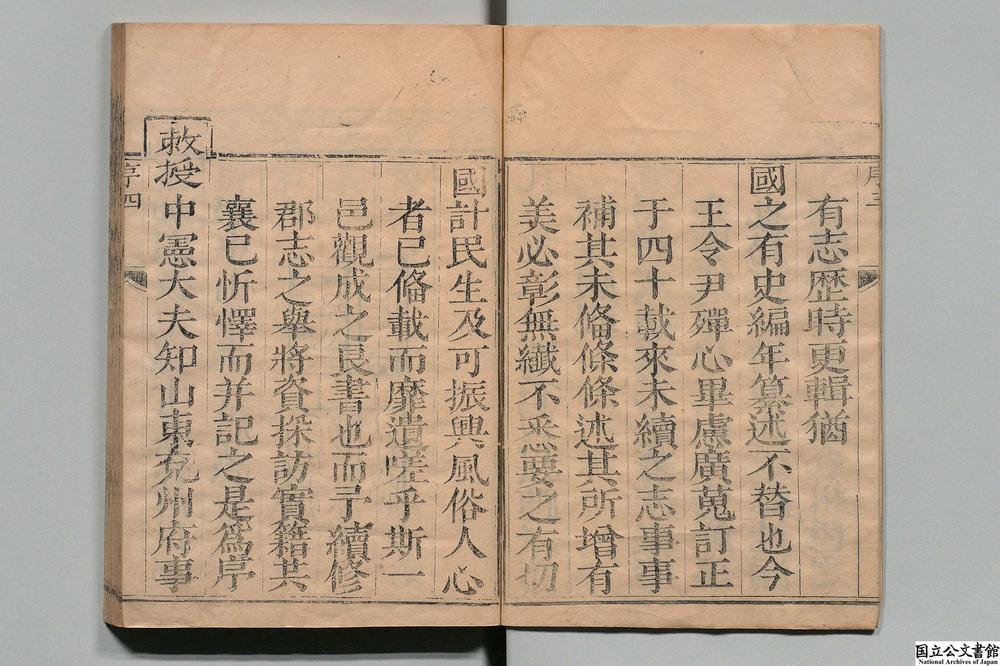 序三
有志歴時更輯猶
國之有史編年纂述不替也今
王令尹殫心畢慮廣蒐訂正
于四十載來未續之志事事
補其未俻條條述其所增有
美必彰無纖不悉要之有切
國計民生及可振興風俗人心
者已俻載而靡遺嗟乎斯一
邑觀成之良書也而予續修
郡志之舉將資採訪實籍其
襄已忻懌而并記之是爲序
敕授中憲大夫知山東兖州府事
序四
国立公文書館
National Archives of Japan